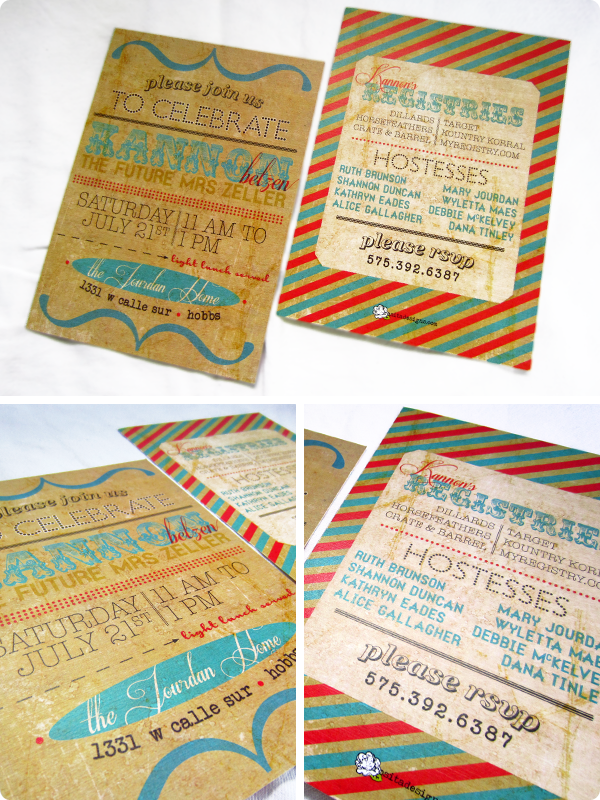 please join us
TO CELEBRATE
KANNON
betzen
THE FUTURE MRS ZELLER
SATURDAY 11 AM TO
JULY 21ST 1 PM
light lunch served
the Jourdan Home
1331 w calle sur • hobbs
Kannon's
REGISTRIES
DILLARDS TARGET
HORSEFEATHERS KOUNTRY KORRAL
CRATE & BARREL MYREGISTRY.COM
HOSTESSES
RUTH BRUNSON MARY JOURDAN
SHANNON DUNCAN WYLETTA MAES
KATHRYN EADES DEBBIE McKELVEY
ALICE GALLAGHER DANA TINLEY
please rsvp
575.392.6387
please join us
O CELEBRATE
ANNO
betzen
FUTURE MRS ZELLER
SATURDAY 11 AM TO
JULY 21ST 1 PM
light lunch served
the Jourdan Home
1331 w calle sur • hobbs
Kannon's
REGISTRIES
SHANNON DUNCAN
KATHRYN EADES
ALICE GALLAGHER
Kannon's
REGISTRIE
DILLARDS TARGET
HORSEFEATHERS KOUNTRY KORRAL
CRATE & BARREL MYREGISTRY.COM
HOSTESSES
RUTH BRUNSON MARY JOURDA
SHANNON DUNCAN WYLETTA MAE
KATHRYN EADES DEBBIE McKELVE
ALICE GALLAGHER DANA TINLE
please rsvp
575.392.6387